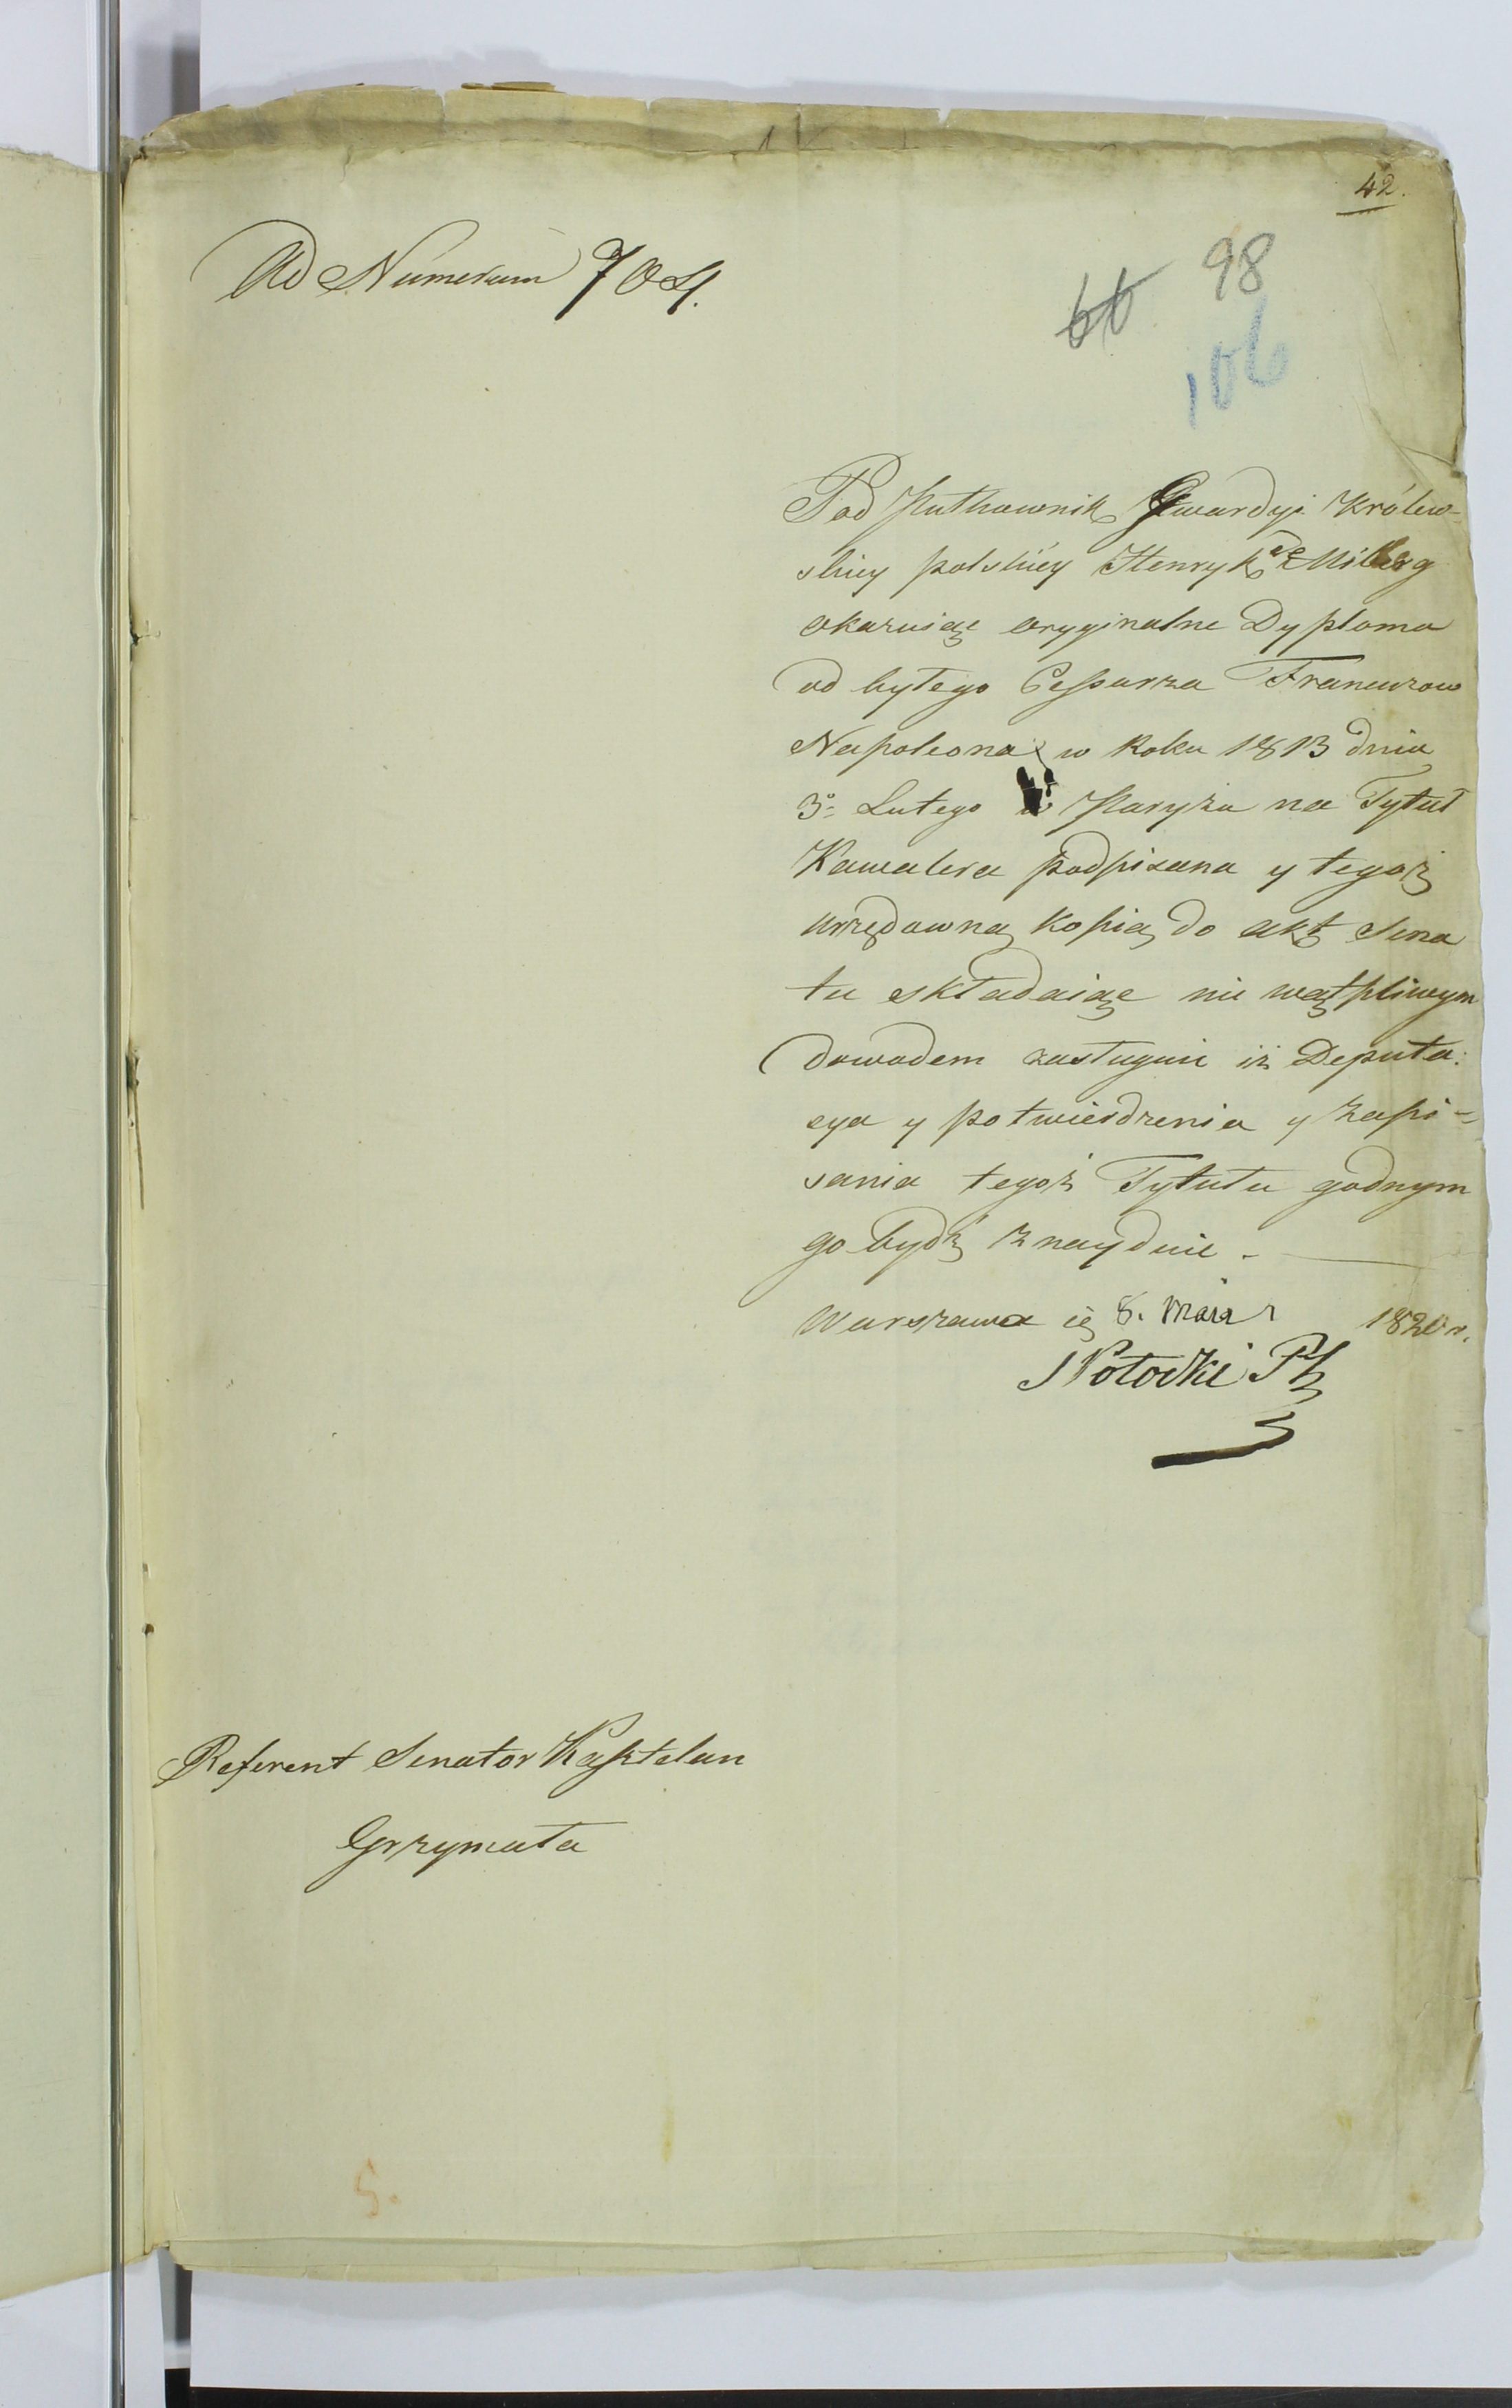 42.
Ad Numerum 704.
98
66
106
Pod Pułkownik Gwardyi Królew-
skiey polskiey Henryk de Milberg
okazuiąc oryginalne Dyploma
od byłego Cessarza Francuzow
Napoleona w Roku 1813 dnia
3º Lutego w Paryżu na Tytuł
Kawalera podpisana y tegoż
urzędowną kopią do akt Sena
tu składaiąc nie wątpliwym
dowodem zasługuie iż Deputa:
cya y potwierdzenia y zapi-
sania tegoż Tytułu godnym
go bydź znayduie.
Warszawa 8. Maia 1820 r.
S Potocki
Referent Senator Kasztelan
Grzymała
5.